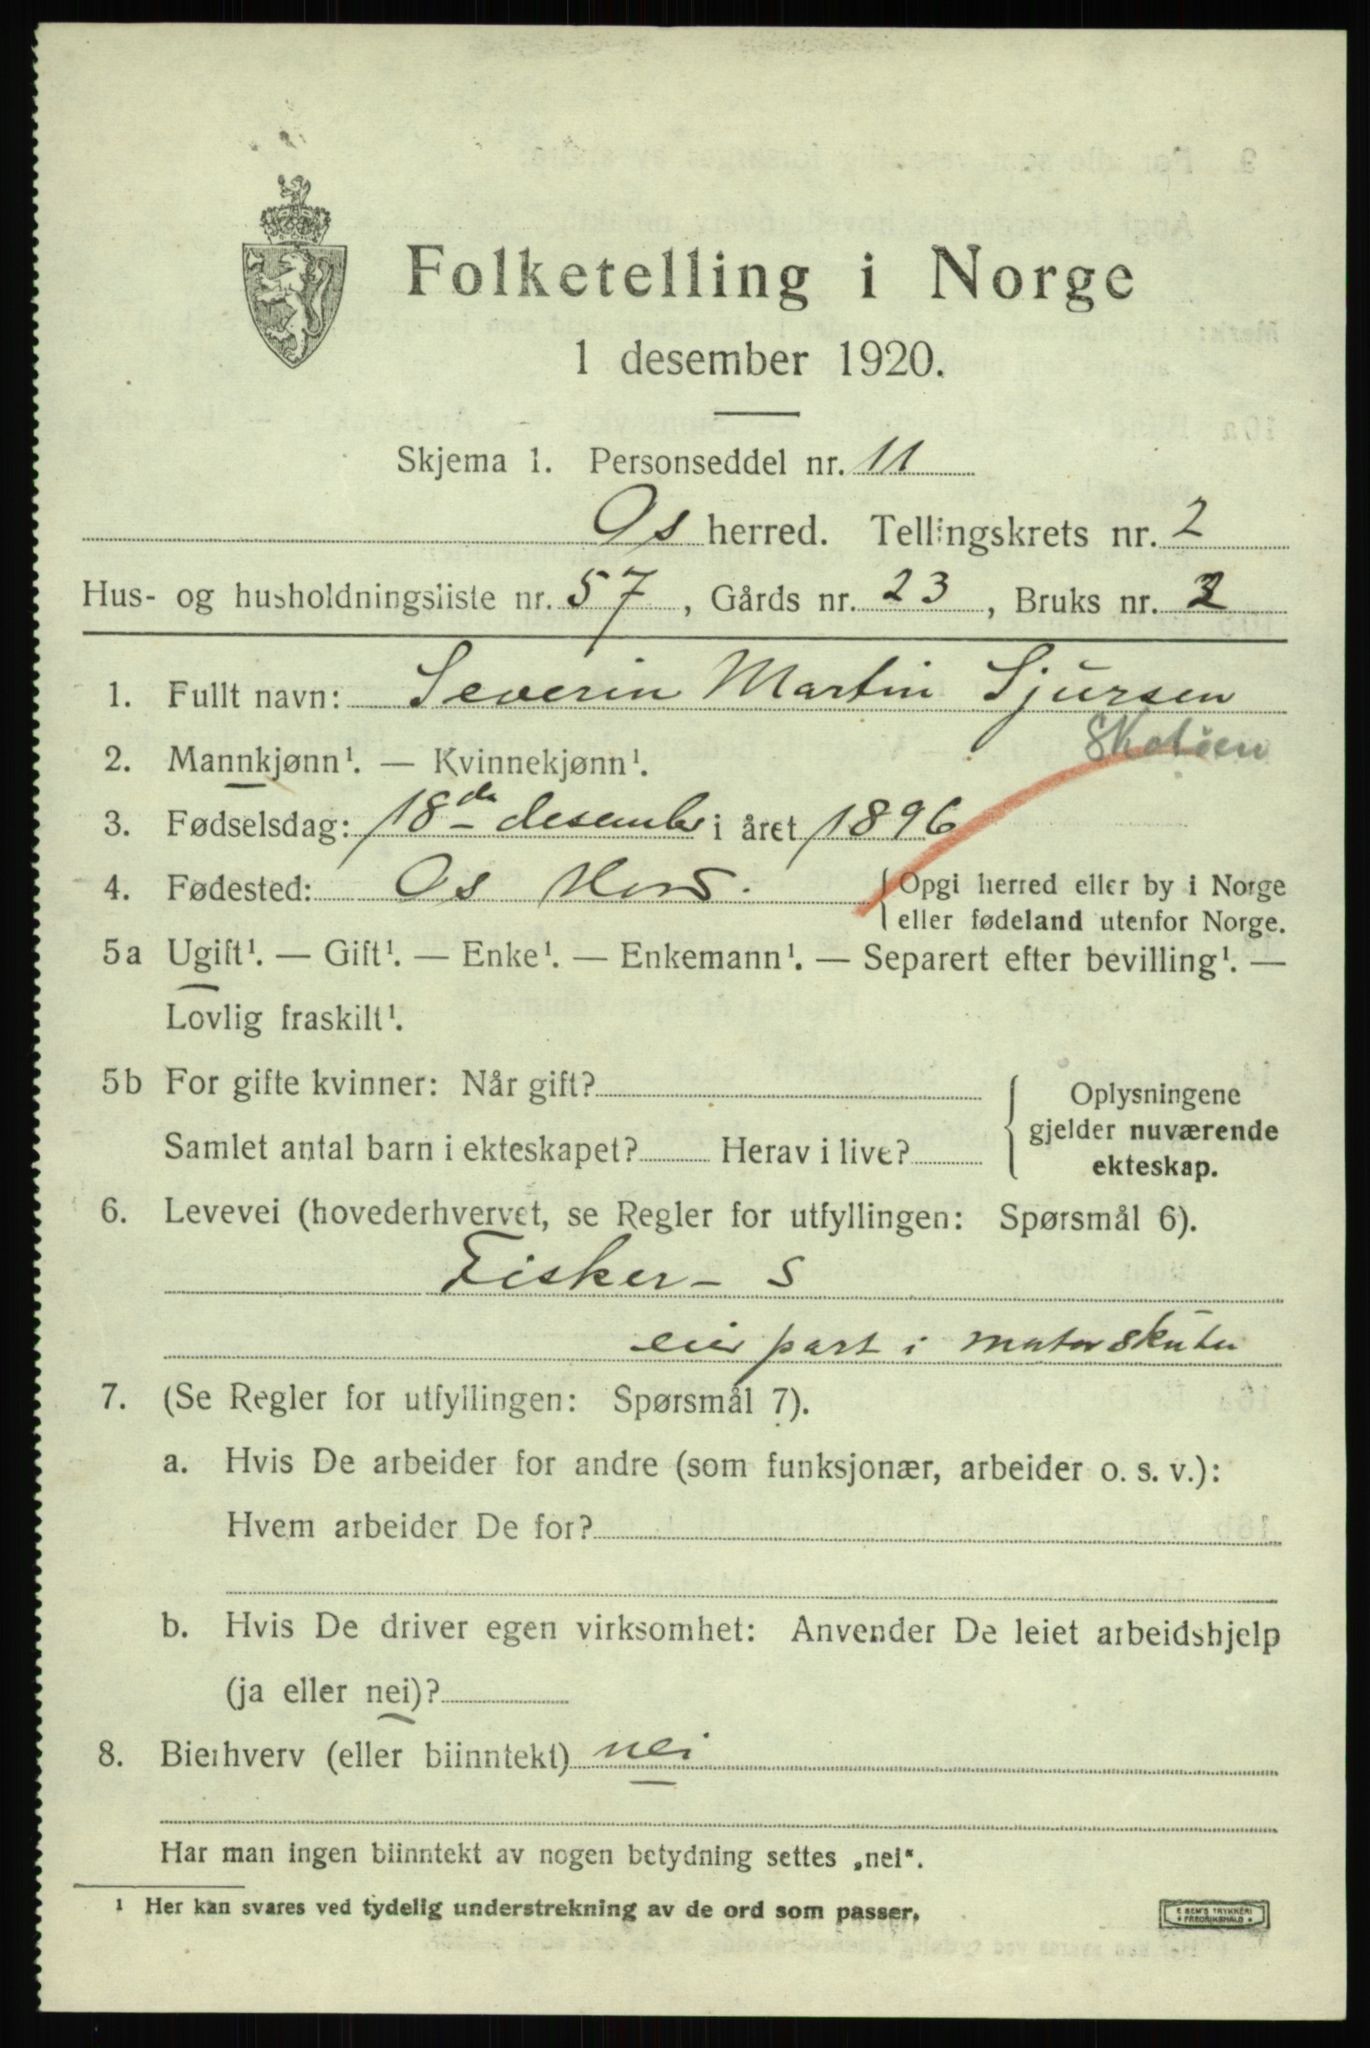 Folketelling i Norge
1 desember 1920.
Skjema 1. Personseddel nr. 11
Os herred. Tellingskrets nr. 2
Hus- og husholdningsliste nr. 57, Gårds nr. 23, Bruks nr. 2
1. Fullt navn: Severin Martin Sjursen
2. Mannkjønn¹. — Kvinnekjønn¹.
3. Fødselsdag: 18de desember i året 1896
4. Fødested: Os Hord. {Opgi herred eller by i Norge
eller fødeland utenfor Norge.
5a Ugift¹. — Gift¹. — Enke¹. — Enkemann¹. — Separert efter bevilling¹. —
Lovlig fraskilt¹.
5b For gifte kvinner: Når gift?
Samlet antal barn i ekteskapet? Herav i live?
Oplysningene
gjelder nuværende
ekteskap.
6. Levevei (hovederhvervet, se Regler for utfyllingen: Spørsmål 6).
Fisker - S
eier part i motorskuter
7. (Se Regler for utfyllingen: Spørsmål 7).
a. Hvis De arbeider for andre (som funksjonær, arbeider o. s. v.):
Hvem arbeider De for?
b. Hvis De driver egen virksomhet: Anvender De leiet arbeidshjelp
(ja eller nei)?
8. Bierhverv (eller biinntekt) nei
Har man ingen biinntekt av nogen betydning settes „nei“.
¹ Her kan svares ved tydelig understrekning av de ord som passer.
E SEM'S TRYKKERI
FREDRIKSHALD